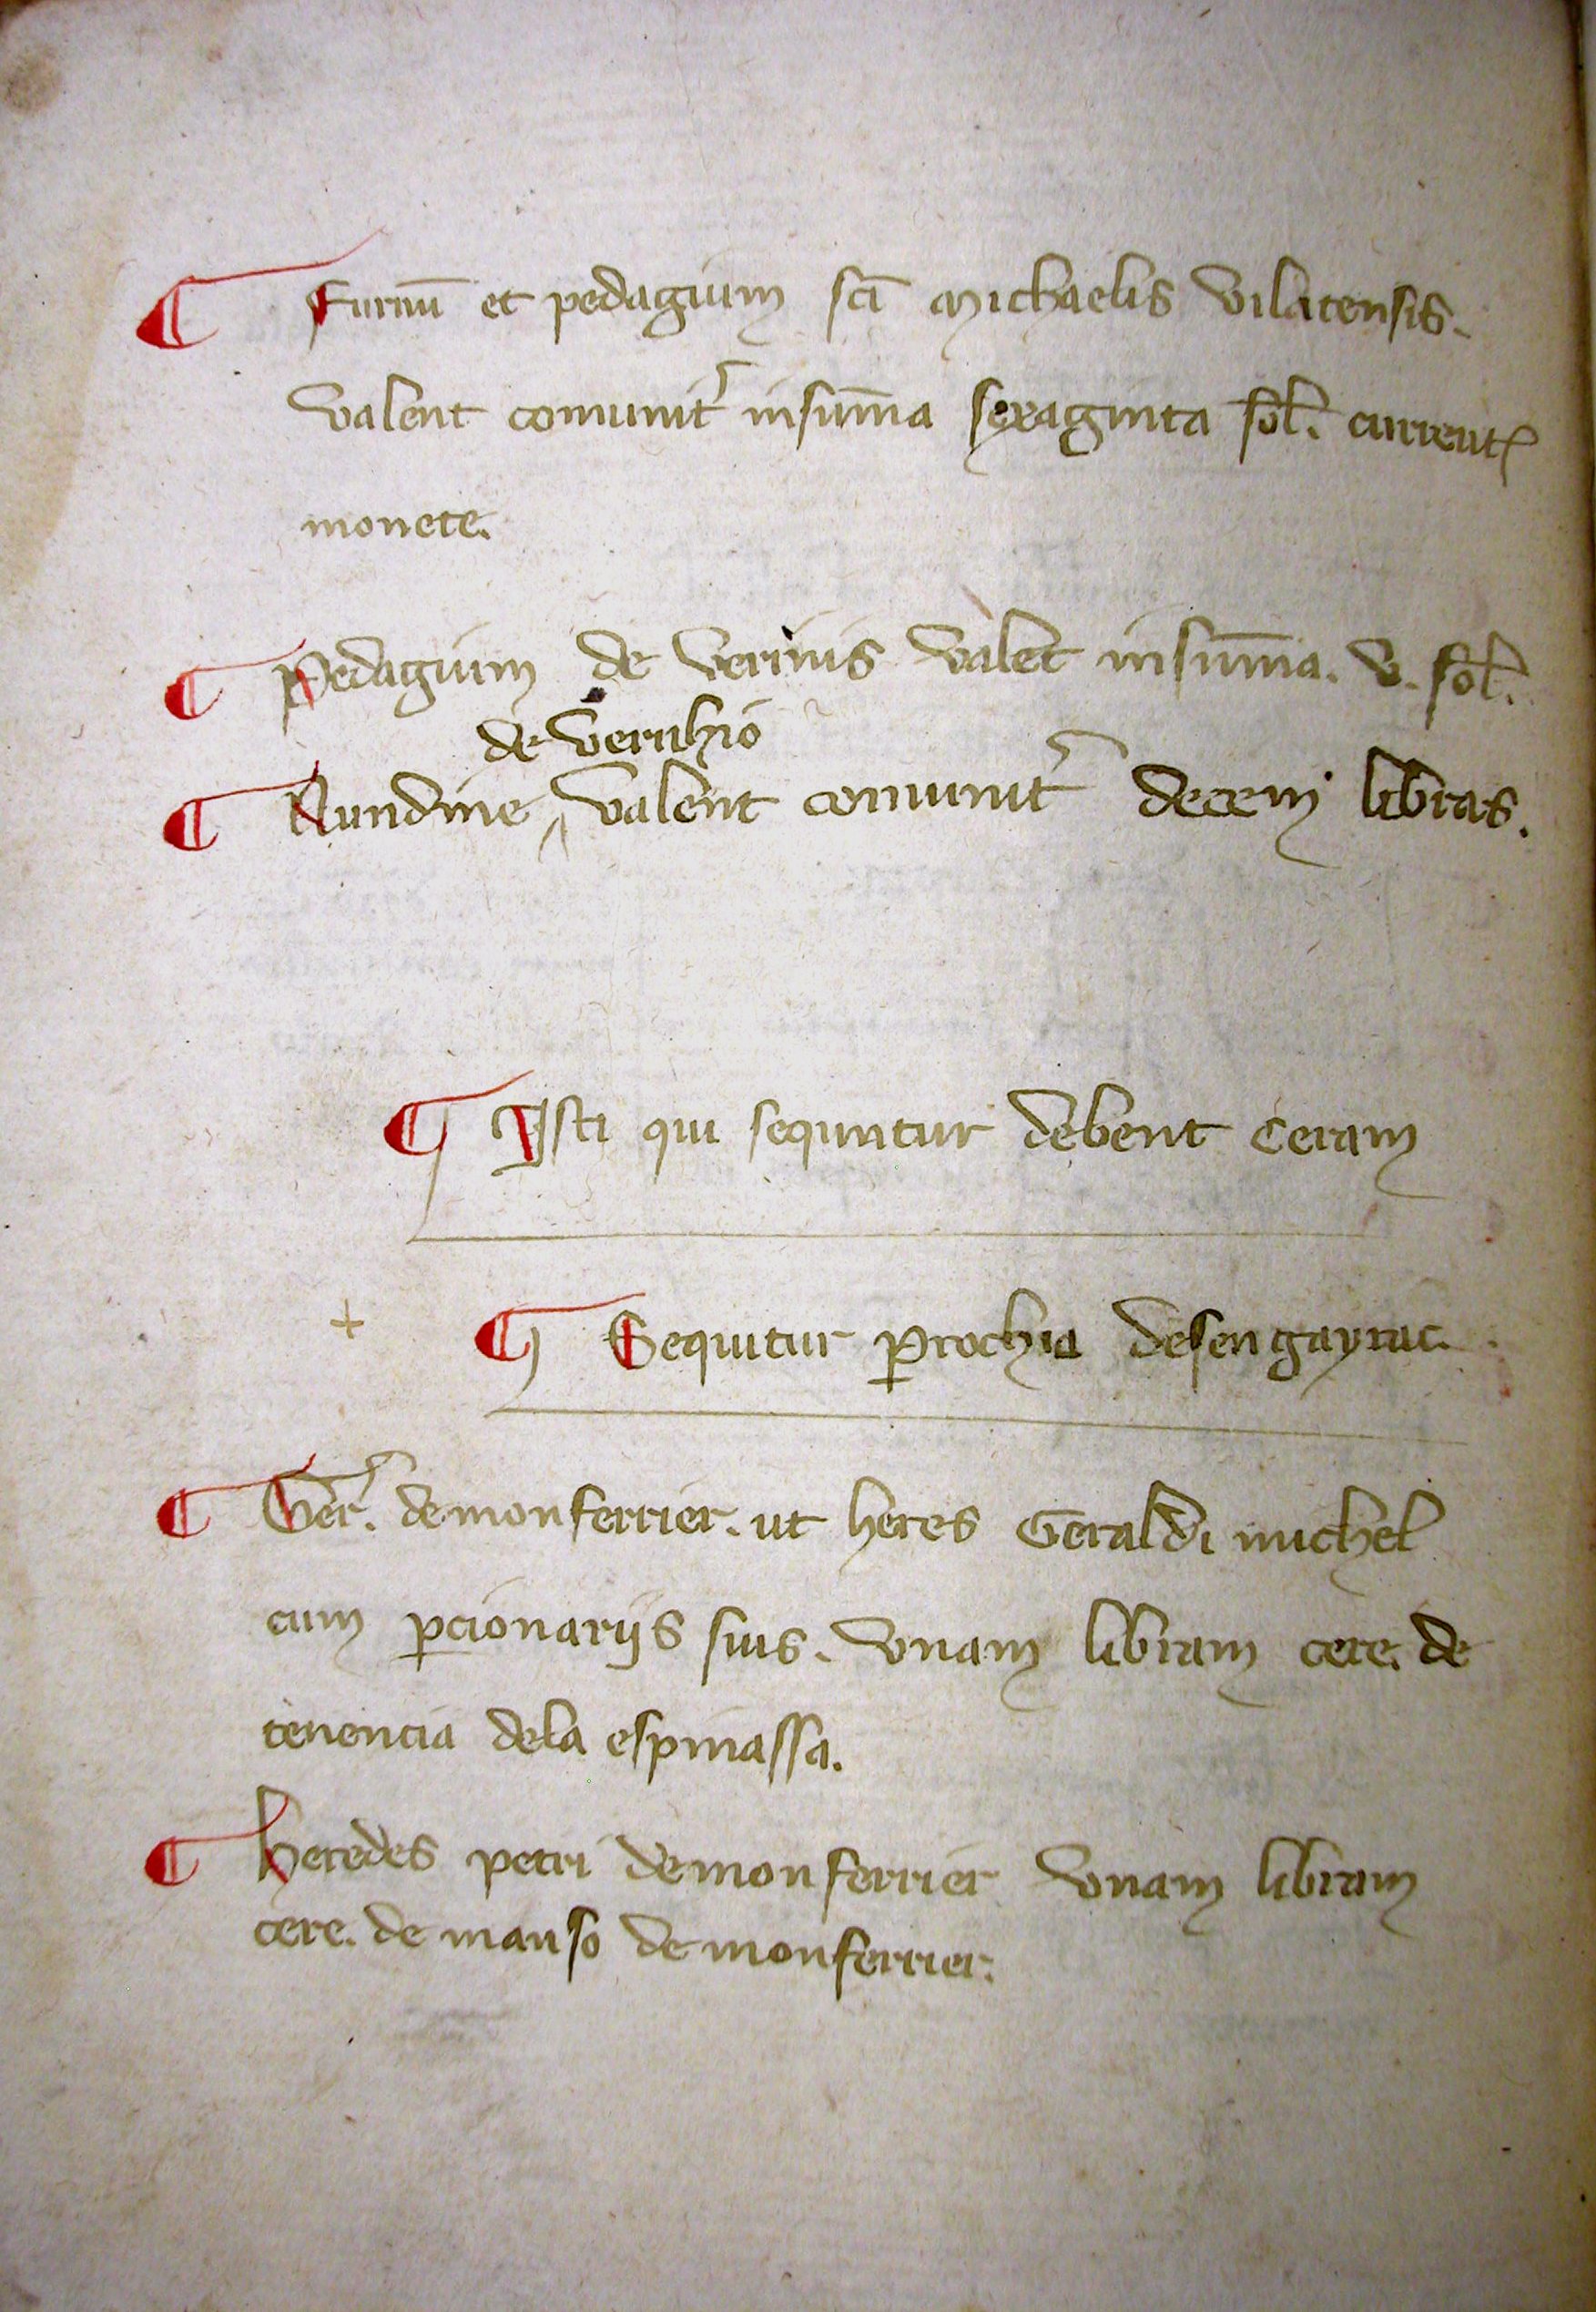 ¶ Furnū et pedagium sci̅ michaelis vilatensis.
valent comunit᷑ insum̅a sexaginta sol̅. current᷑
monete.
¶ Pedagium de verinis valet insum̅a. v. sol̅.
de verulhio
¶ Nundine ‸ valent comunit᷑ decem libras.
¶ Isti qui sequntur debent ceram
+ ¶ Sequitur ꝑrochia desengayrac.
¶ Ger᷑. demonferrier. ut heres Geraldi michel
cum ꝑcionarijs suis. vnam libram cere. de
tenencia dela espinassa.
¶ heredes petri demonferrier vnam libram
cere. de manso demonferrier.